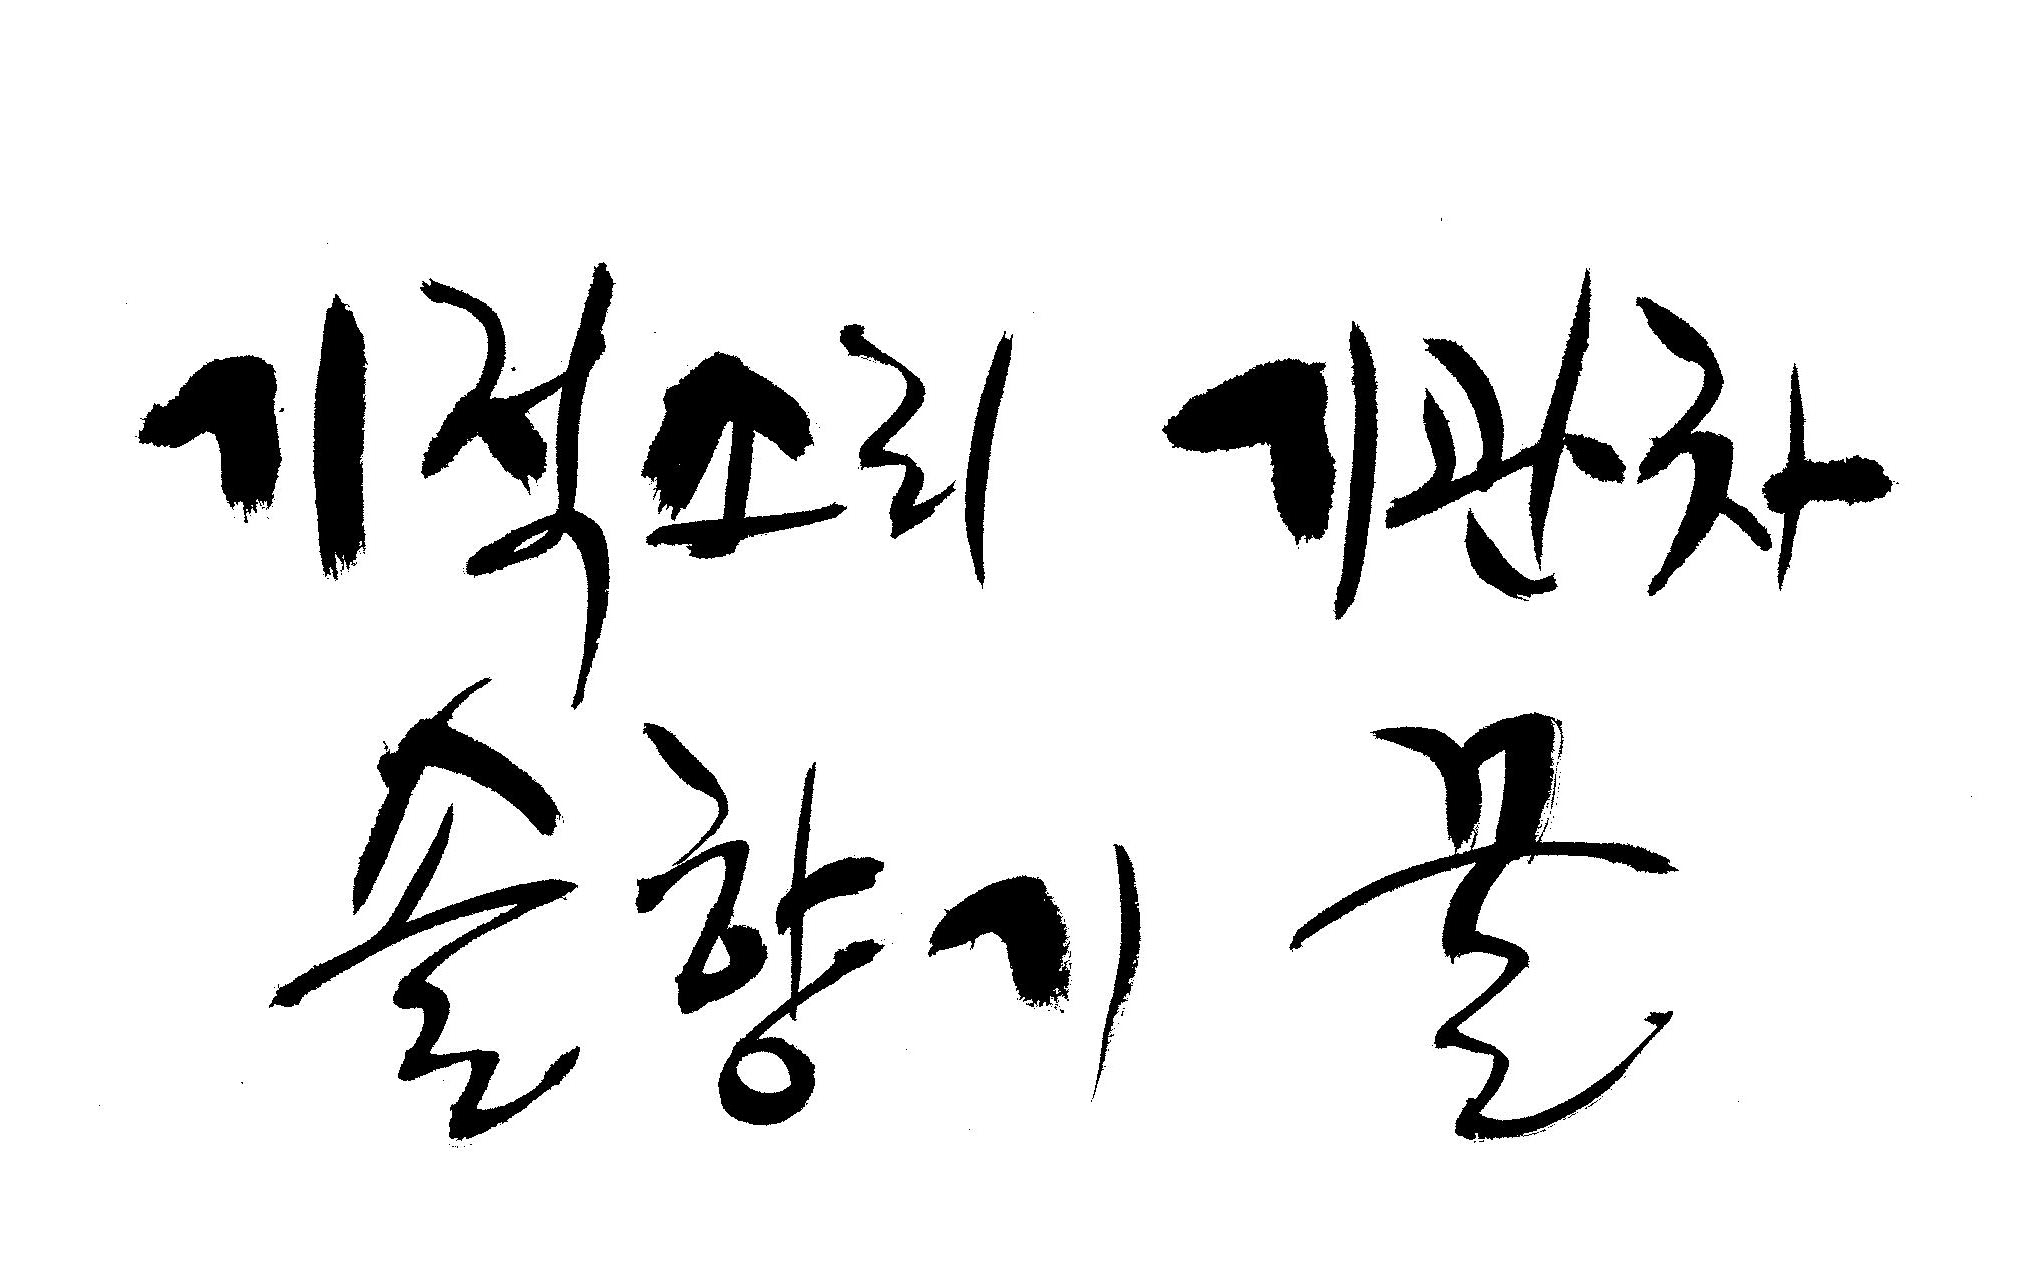 기적소리 기관차
솔향기 꿀